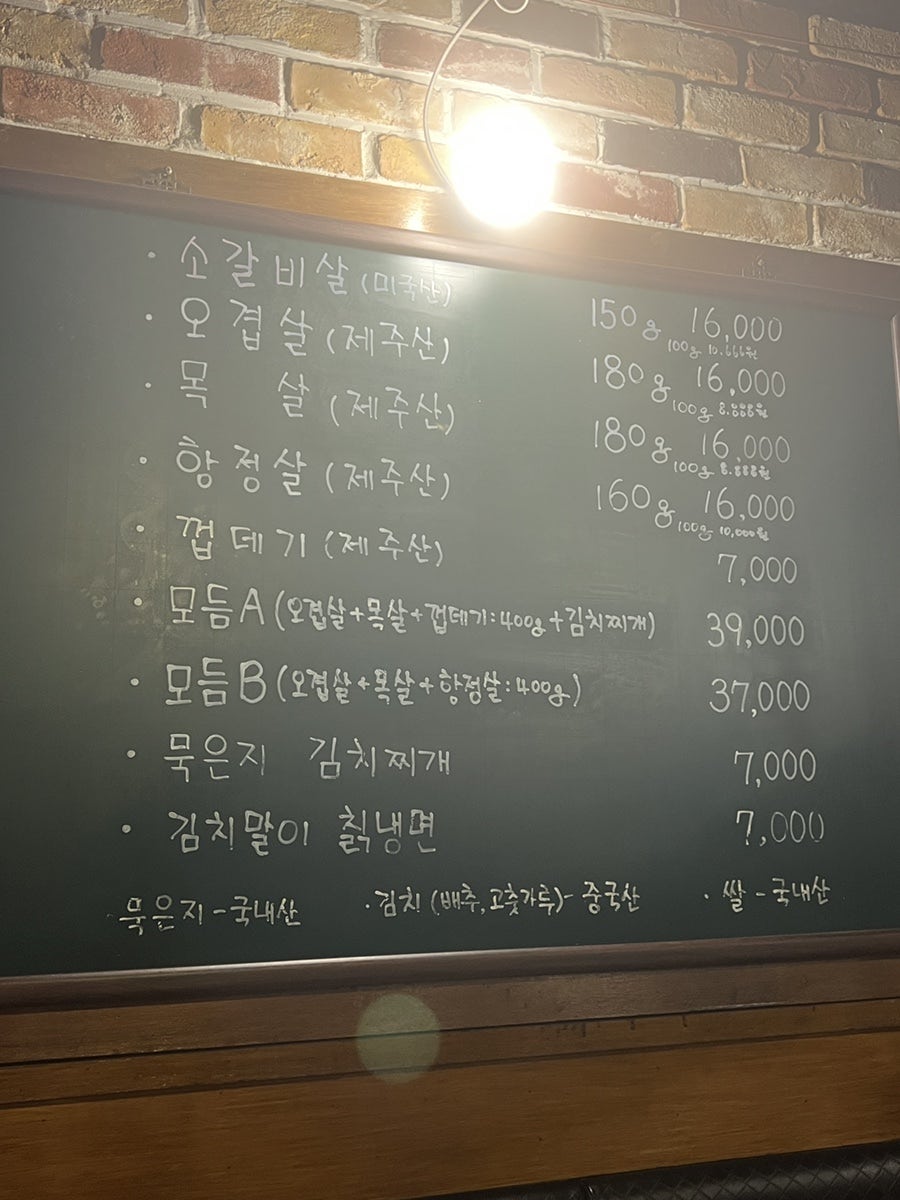 · 소갈비살 (미국산) 150g 16,000
100g 10.666원
· 오겹살 (제주산) 180g 16,000
100g 8.888원
· 목 살 (제주산) 180g 16,000
100g 8.888원
· 항정살 (제주산) 160g 16,000
100g 10,000원
· 껍데기 (제주산) 7,000
· 모듬A (오겹살+목살+껍데기:400g+김치찌개) 39,000
· 모듬B (오겹살+목살+항정살:400g) 37,000
· 묵은지 김치찌개 7,000
· 김치말이 칡냉면 7,000
· 묵은지-국내산 · 김치 (배추, 고춧가루)- 중국산 · 쌀 - 국내산